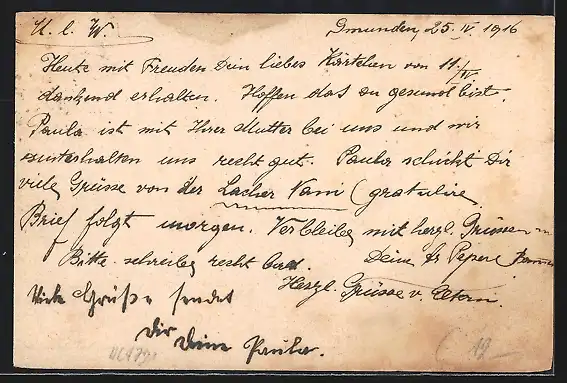 U. l. W.
Gmunden, 25. IV 1916
Heute mit Freuden Dein liebes Kärtchen von 11/IV
dankend erhalten. Hoffen das du gesund bist.
Paula ist mit Ihrer Mutter bei uns und wir
unterhalten uns recht gut. Paula schickt Dir
viele Grüsse von der Lacher Nani (gratulire
Brief folgt morgen. Verbleibe mit herzl. Grüssen
Bitte schreibe recht bald. Deine
Herzl. Grüsse v. Eltern.
Viele Grüße sendet
Dir Deine Paula.